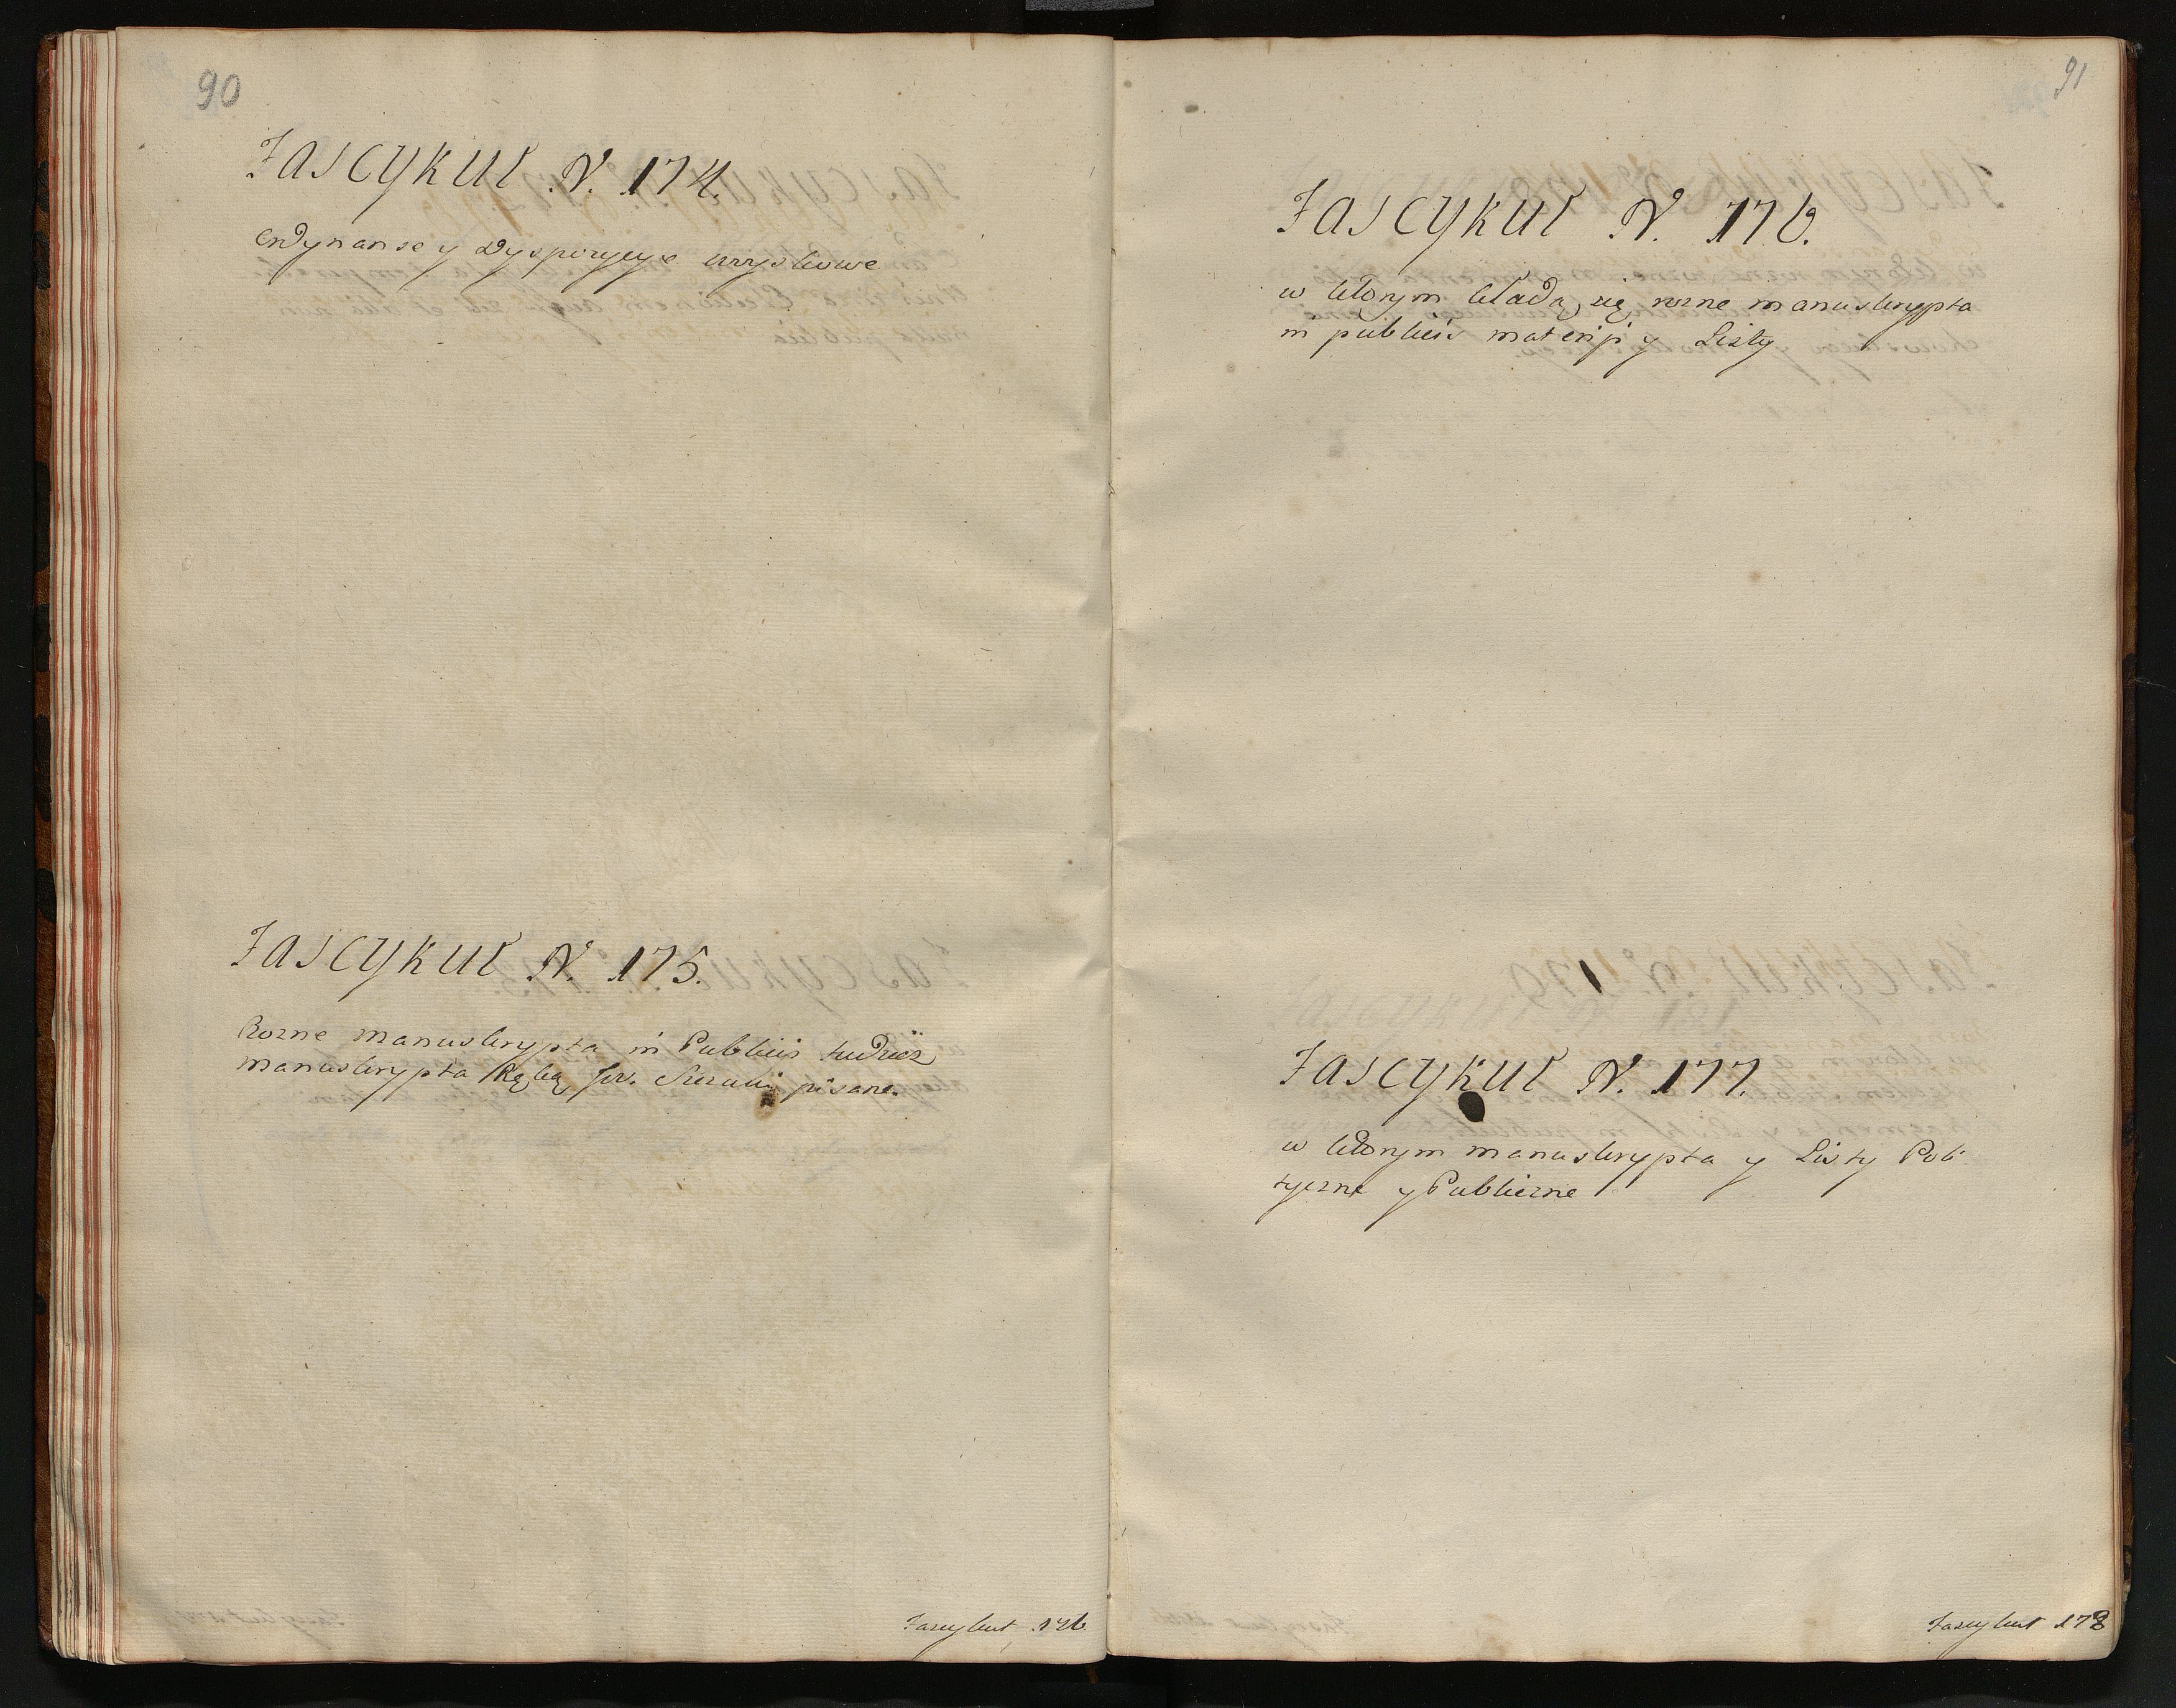 90
Fascykuł N. 174.
Ordynanse y Dyspozycye woyskowe
Fascykuł N. 175.
Rozne manuskrypta in Publicis tudziez
manuskrypta Ręką pisane.
Fascykuł 176
91
Fascykuł N. 176.
w ktorym kładą się rozne manuskrypta
in publicis materiji y Listy
Fascykuł N. 177.
w ktorym manuskrypta y Listy Poli
tyczne y Publiczne
Fascykuł 178